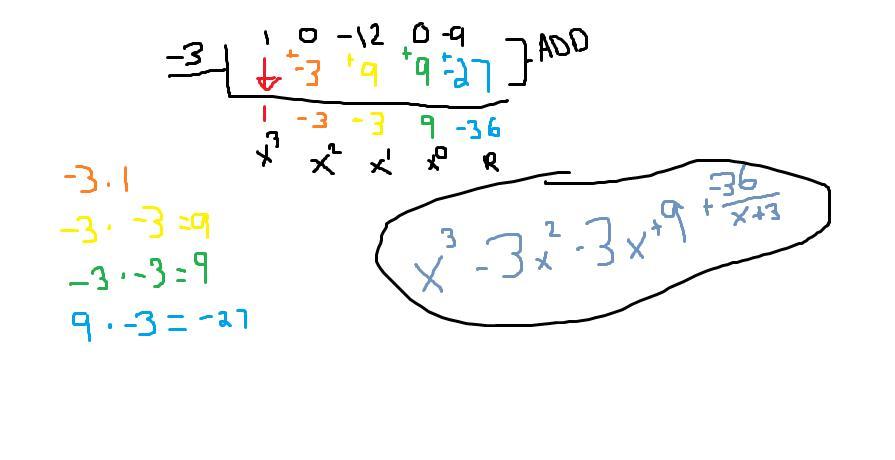 1 0 -12 0 -9
-3 + -3 + 9 + 9 + -27 ADD
1 -3 -3 9 -36
x³ x² x¹ x⁰ R
-3 · 1
-3 · -3 = 9
-3 · -3 = 9
9 · -3 = -27
x³ - 3x² - 3x + 9 + -36/x+3